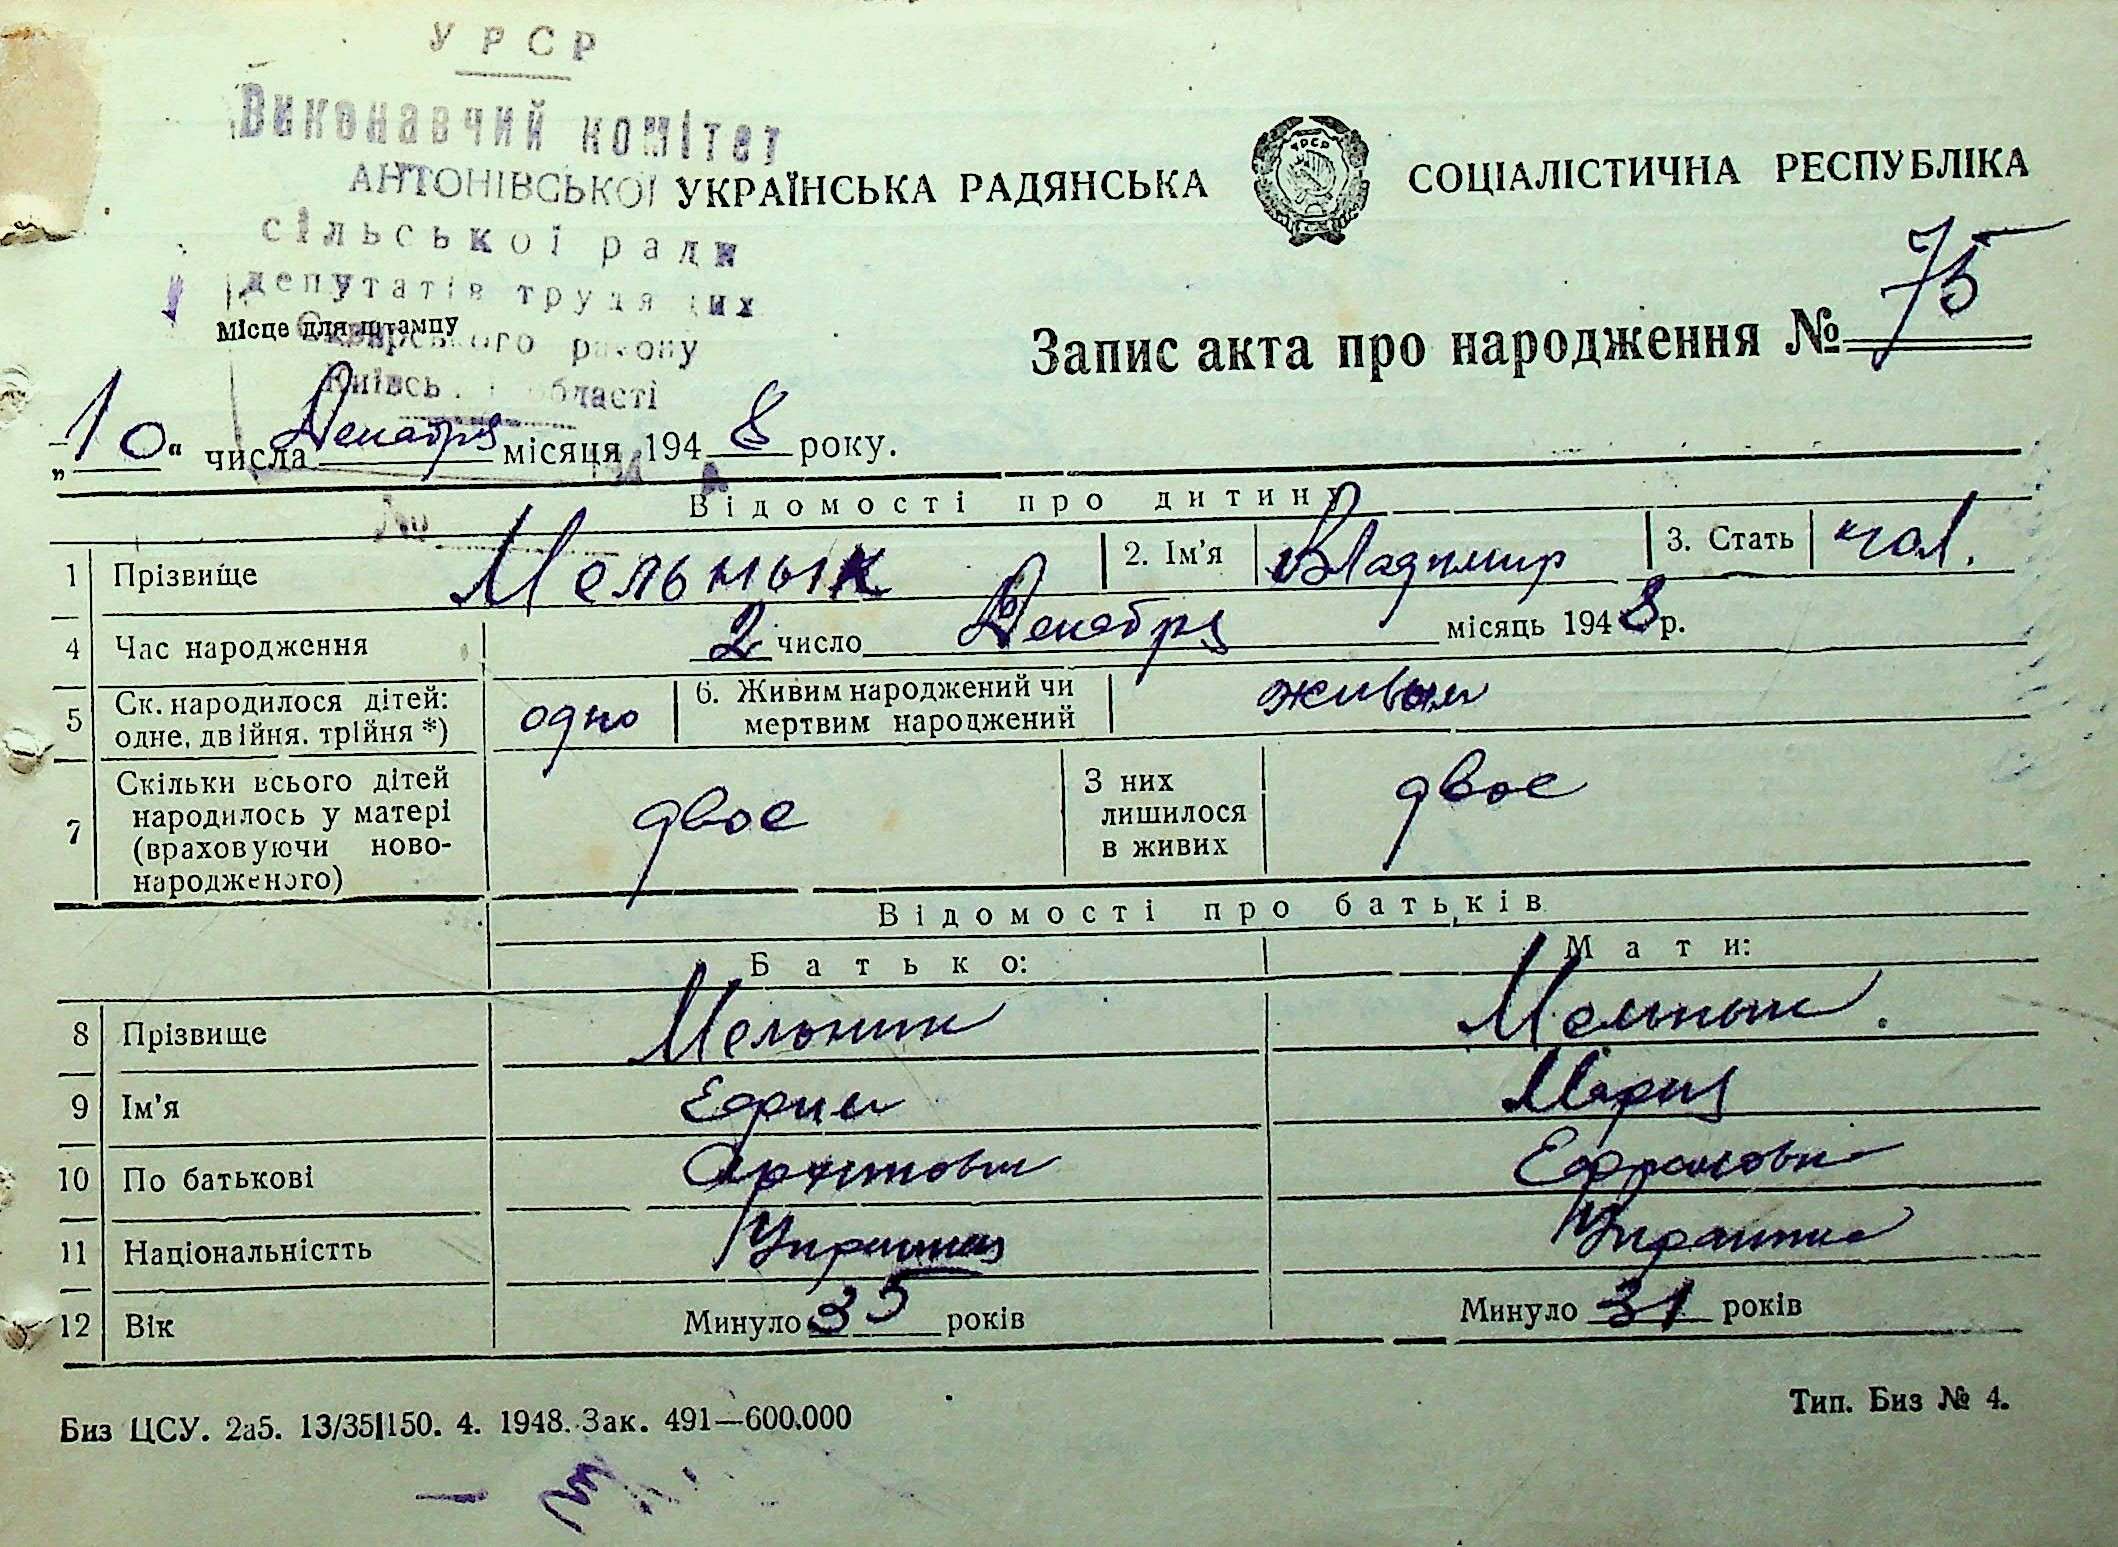 УРСР
Виконавчий комітет
АНТОНІВСЬКОЇ
сільської ради
депутатів трудящих
району
Київсь області
УКРАЇНСЬКА РАДЯНСЬКА СОЦІАЛІСТИЧНА РЕСПУБЛІКА
УРСР
Місце для штампу
Запис акта про народження № 75
„10“ числа Декабря місяця 1948 року.
№
Відомості про дитину
1 Прізвище Мельнык 2. Ім'я Владимир 3. Стать чол.
4 Час народження 2 число Декабря місяць 1948 р.
5 Ск. народилося дітей: одне, двійня, трійня *) одно 6. Живим народжений чи мертвим народжений живым
7 Скільки всього дітей народилось у матері (враховуючи ново-народженого) двое З них лишилося в живих двое
Відомості про батьків
Батько: Мати:
8 Прізвище Мельник Мельнык
9 Ім'я Ефим Мария
10 По батькові
11 Національністть
12 Вік Минуло 35 років Минуло 31 років
Биз ЦСУ. 2а5. 13/35|150. 4. 1948. Зак. 491—600.000
Тип. Биз № 4.